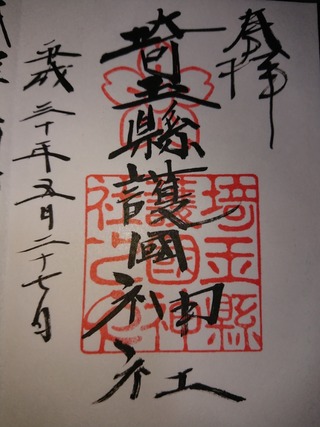 奉拝
埼玉縣護國神社
平成三十年五月二十七日
埼玉縣
護國神
社之印